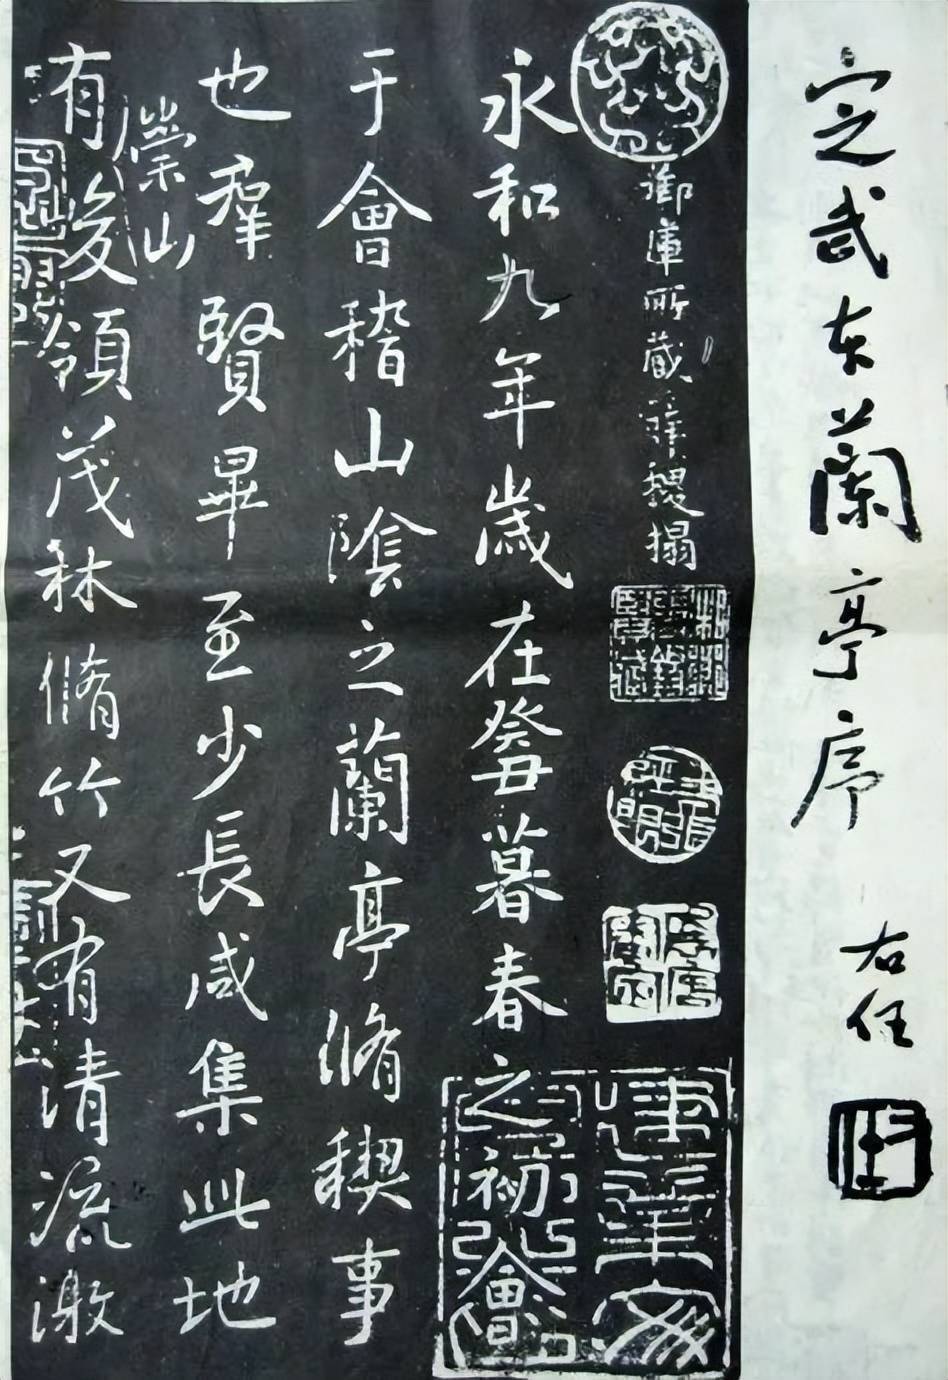 定武本蘭亭序
右任
御庫所藏禊搨
永和九年歲在癸丑暮春之初會
于會稽山陰之蘭亭脩稧事
也羣賢畢至少長咸集此地
崇山
有峻領茂林脩竹又有清流激